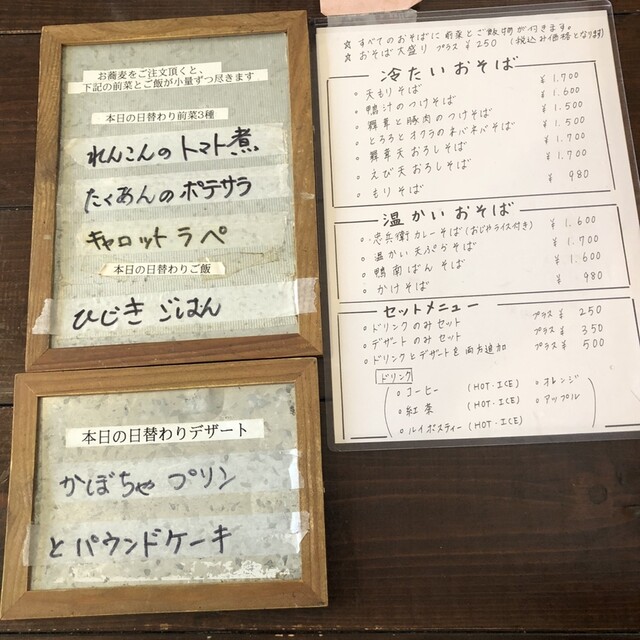 お蕎麦をご注文頂くと、
下記の前菜とご飯が小量ずつ尽きます
本日の日替わり前菜3種
れんこんのトマト煮
たくあんのポテサラ
キャロットラペ
本日の日替わりご飯
ひじきごはん
本日の日替わりデザート
かぼちゃプリン
とパウンドケーキ
☆ すべてのおそばに前菜とご飯物が付きます。
☆ おそば大盛り プラス ¥250 (税込み価格となります)
冷たいおそば
天もりそば ¥1.700
鴨汁のつけそば ¥1.600
舞茸と豚肉のつけそば ¥1.500
とろろとオクラのネバネバそば ¥1.500
舞茸天おろしそば ¥1.700
えび天おろしそば ¥1.700
もりそば ¥980
温かいおそば
忠兵衛カレーそば(おじやライス付き) ¥1.600
温かい天ぷらそば ¥1.700
鴨南ばんそば ¥1.600
かけそば ¥980
セットメニュー
ドリンクのみセット プラス ¥250
デザートのみセット プラス ¥350
ドリンクとデザートを両方追加 プラス ¥500
ドリンク
コーヒー (HOT・ICE) オレンジ
紅茶 (HOT・ICE) アップル
ルイボスティー(HOT・ICE)